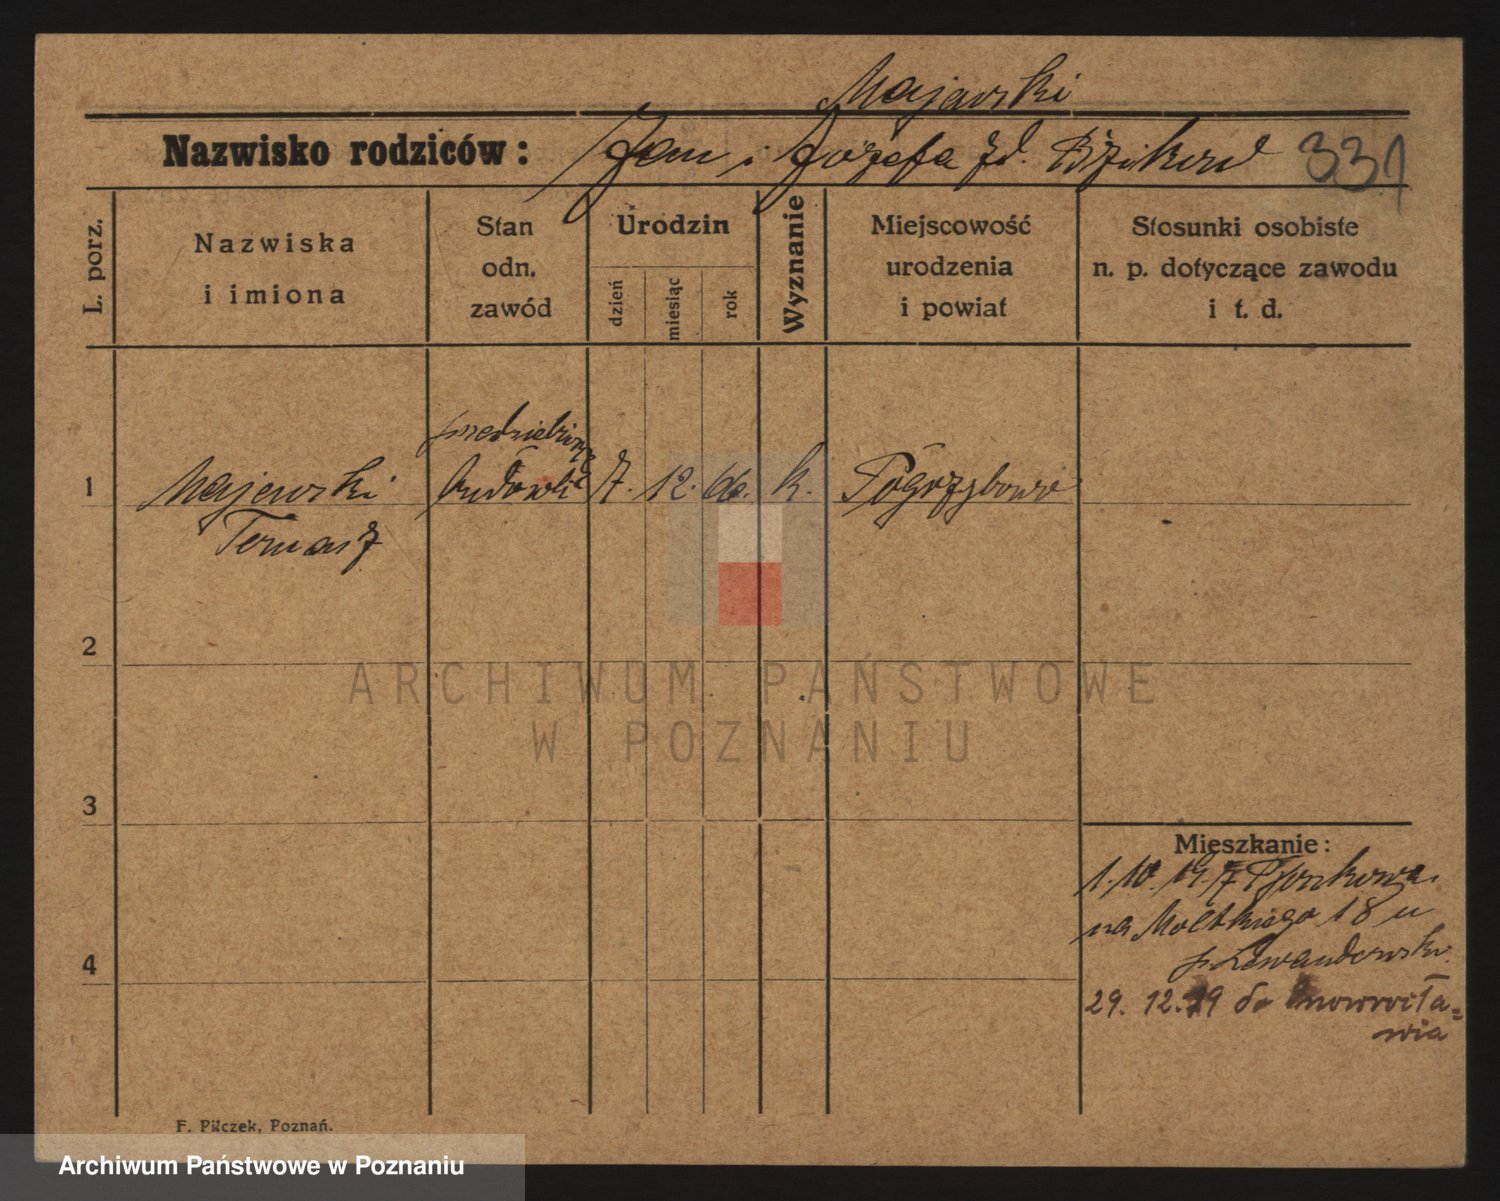 Majewski
Nazwisko rodziców: Jan i Józefa zd. Bzikow
331
L. porz.
Nazwiska
i imiona
Stan
odn.
zawód
Urodzin
dzień
miesiąc
rok
Wyznanie
Miejscowość
urodzenia
i powiat
Stosunki osobiste
n. p. dotyczące zawodu
i t. d.
1
Majewski
Tomasz
budowli
7. 12. 66. k. Pogrzybowo
2
3
4
Mieszkanie:
1. 10. 19. z
na Moltkiego 18 u
p. Lewandowski.
29. 12. 19 do Inowrocła=
wia
F. Pilczek, Poznań.
ARCHIWUM PAŃSTWOWE
W POZNANIU
Archiwum Państwowe w Poznaniu